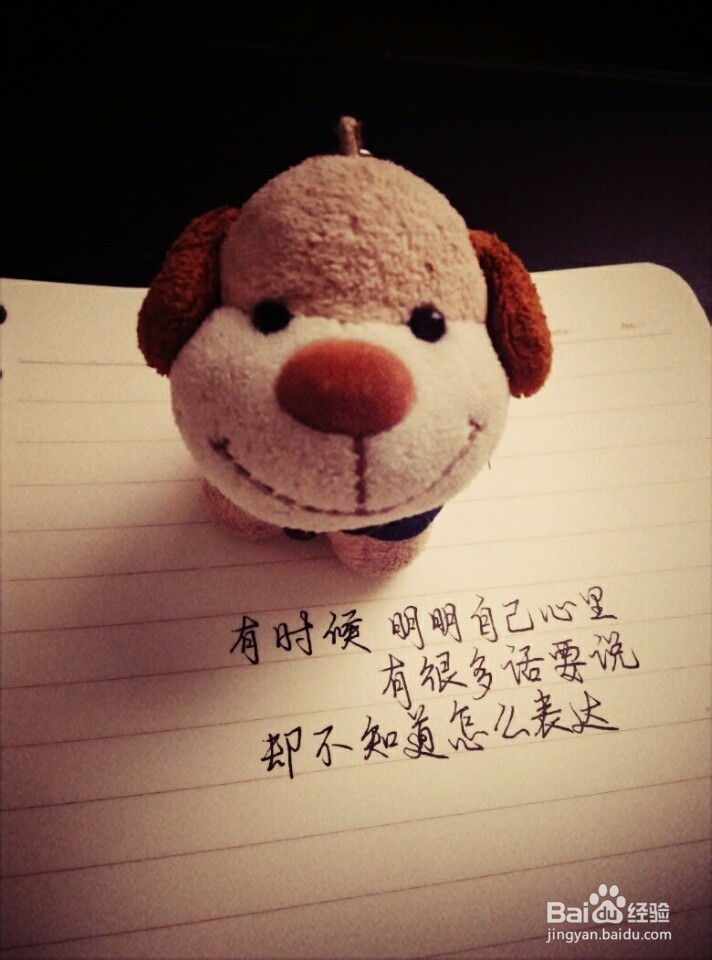 有时候 明明自己心里
有很多话要说
却不知道怎么表达
Baidu经验
jingyan.baidu.com